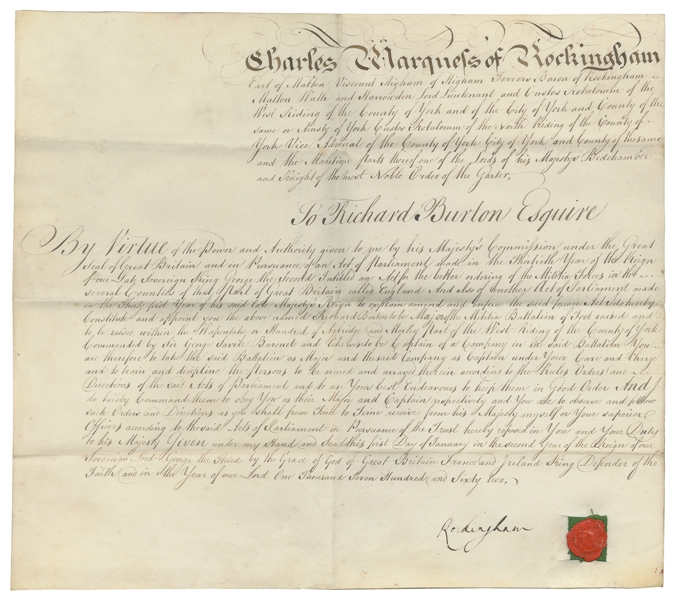 Charles Marquess of Rockingham
Earl of Malton Viscount Higham of Higham Ferrers Baron of Rockingham
Malton Wath and Harrowden Lord Lieutenant and Custos Rotulorum of the
West Riding of the County of York and of the City of York and County of the
same or Ainsty of York Custos Rotulorum of the North Riding of the County of
York Vice Admiral of the County of York City of York and County of the same
and the Maritime Parts thereof one of the Lords of his Majesty's Bedchamber
and Knight of the most Noble Order of the Garter.
To Richard Burton Esquire
By Virtue of the Power and Authority given to me by his Majesty's Commission under the Great
Seal of Great Britain and in Pursuance of an Act of Parliament made in the Thirtieth Year of the Reign
of our Late Sovereign King George the Second Intitled an Act for the better ordering of the Militia Forces in the
several Counties of that Part of Great Britain called England And also of another Act of Parliament made
in the Thirty first Year of his said Late Majesty's Reign to explain amend and inforce the said former Act I do hereby
Constitute and appoint you the above named Richard Burton to be Major of the Militia Battalion of Foot raised and
to be raised within the Wapentake or Hundred of and Part of the West Riding of the County of York
Commanded by Sir George Savile Baronet and likewise to be Captain of a Company in the said Battalion You
are therefore to take the said Battalion as Major and the said Company as Captain under Your Care and Charge
and to train and discipline the Persons to be armed and arrayed therein according to the Rules Orders and
Directions of the said Acts of Parliament and to use Your best Endeavours to keep them in Good Order And I
do hereby Command them to obey You as their Major and Captain respectively and You are to observe and follow
such Orders and Directions as you shall from Time to Time receive from his Majesty myself or Your superior
Officers according to the said Acts of Parliament in Pursuance of the Trust hereby reposed in You and Your Duty
to his Majesty Given under my Hand and Seal this first Day of January in the second Year of the Reign of our
Sovereign Lord George the Third by the Grace of God of Great Britain France and Ireland King Defender of the
Faith and in the Year of our Lord One Thousand Seven Hundred and Sixty two.
Rockingham